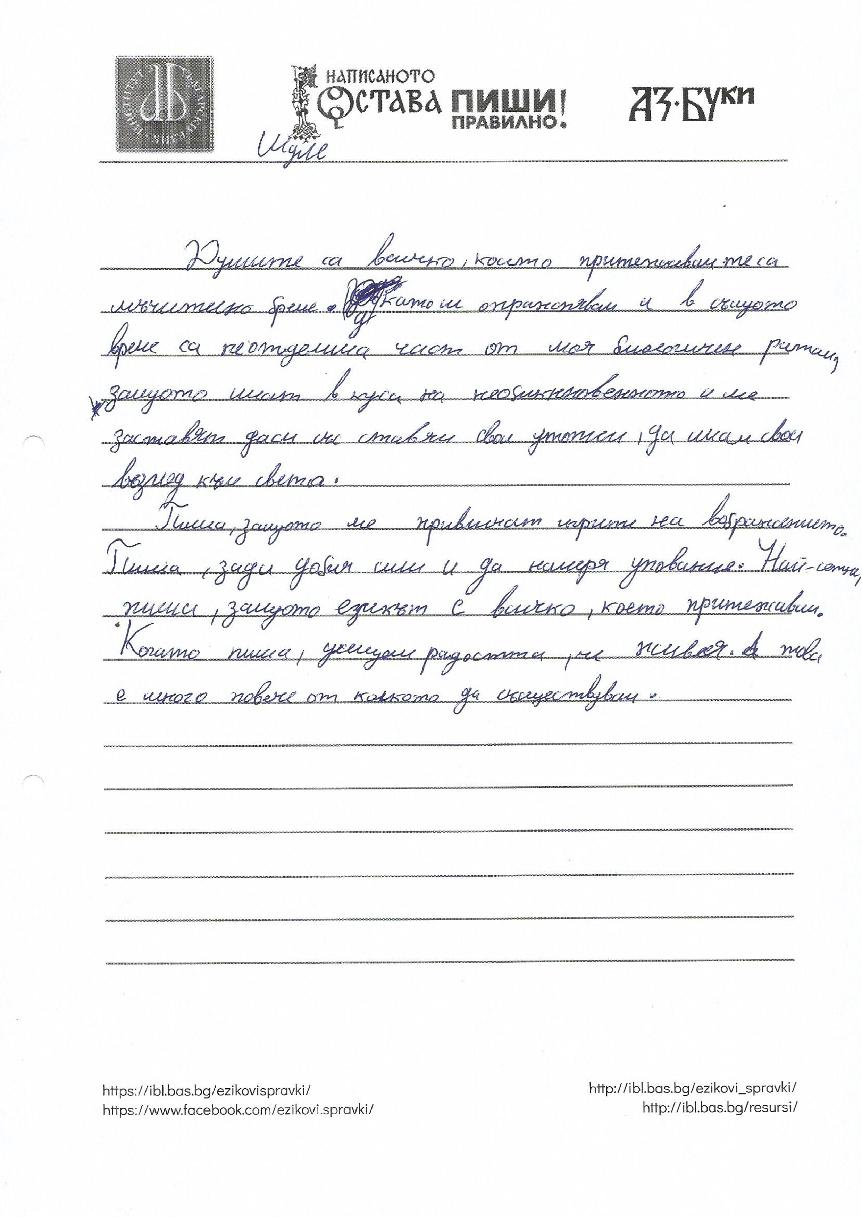 НАПИСАНОТО
ОСТАВА ПИШИ!
ПРАВИЛНО.
АЗ·БУКИ
Думите са всичко, което притежавам те са
мъчително бреме. като ги опразнявам и в същото
време са неотделима част от моя биологичен ритъм,
защото имат вкуса на необикновенното и ме
заставят даси ги ставям свои утопии, да имам свой
възглед към света.
Пиша, защото ме привличат игрите на въбражението.
Пиша, зади добия сили и да намеря упование. Най-сетне,
пиша, защото езикът е всичко, което притежавам.
Когато пиша, усещам радостта, че живея. А това
е много повече от колкото да съществувам.
https://ibl.bas.bg/ezikovispravki/
http://ibl.bas.bg/ezikovi_spravki/
https://www.facebook.com/ezikovi.spravki/
http://ibl.bas.bg/resursi/